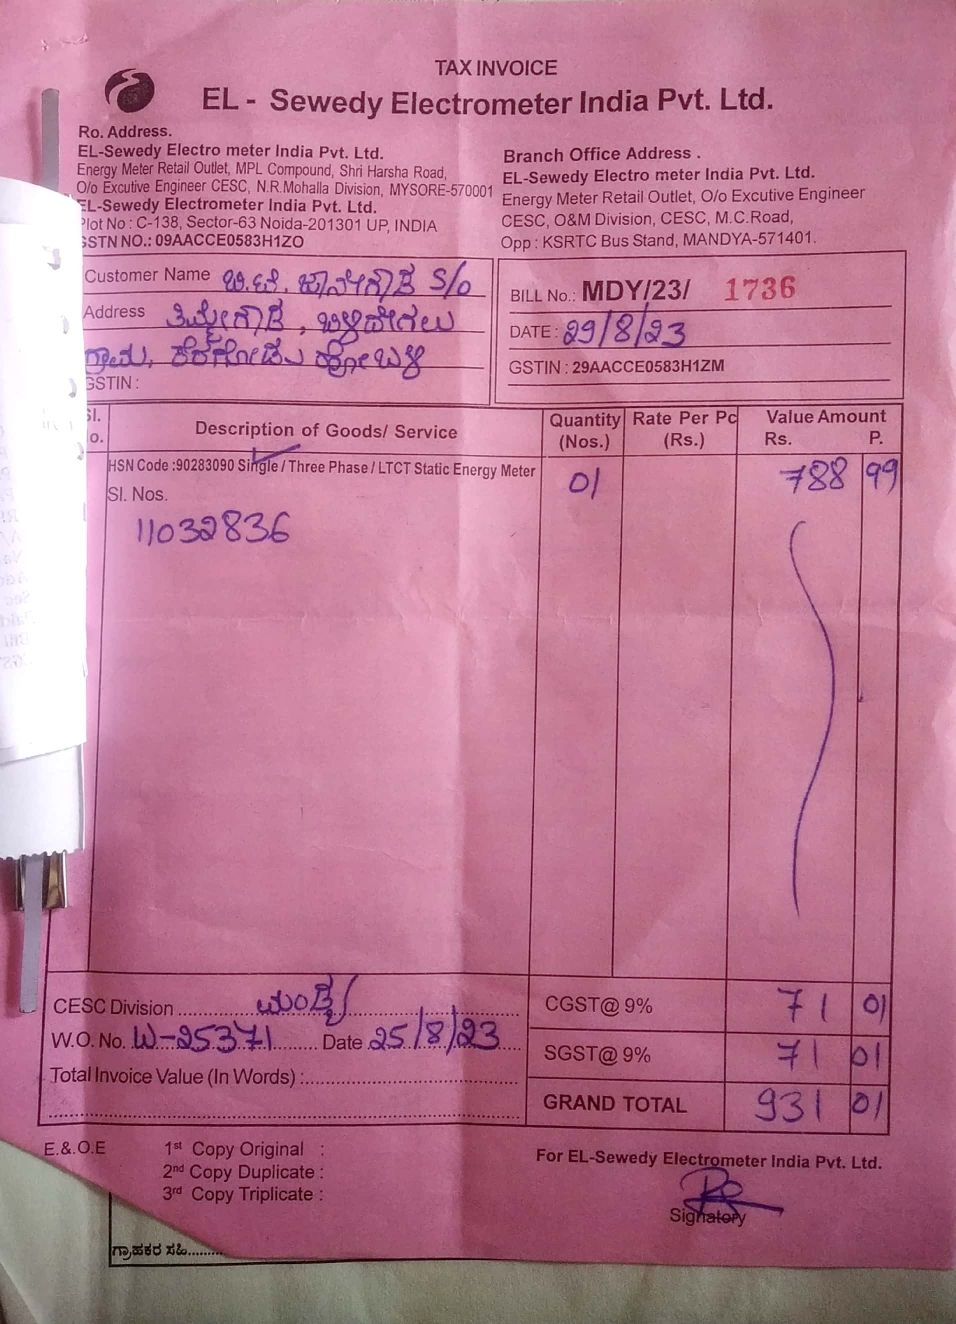 TAX INVOICE
EL - Sewedy Electrometer India Pvt. Ltd.
Ro. Address.
EL-Sewedy Electro meter India Pvt. Ltd.
Energy Meter Retail Outlet, MPL Compound, Shri Harsha Road,
O/o Excutive Engineer CESC, N.R.Mohalla Division, MYSORE-570001
EL-Sewedy Electrometer India Pvt. Ltd.
Plot No : C-138, Sector-63 Noida-201301 UP, INDIA
GSTN NO.: 09AACCE0583H1ZO
Branch Office Address .
EL-Sewedy Electro meter India Pvt. Ltd.
Energy Meter Retail Outlet, O/o Excutive Engineer
CESC, O&M Division, CESC, M.C.Road,
Opp : KSRTC Bus Stand, MANDYA-571401.
Customer Name S/o
Address
ಗ್ರಾಮ,
GSTIN :
BILL No.: MDY/23/ 1736
DATE : 29/8/23
GSTIN : 29AACCE0583H1ZM
Sl. No. Description of Goods/ Service Quantity (Nos.) Rate Per Pc (Rs.) Value Amount Rs. P.
HSN Code :90283090 Single / Three Phase / LTCT Static Energy Meter 01 788 99
Sl. Nos.
11032836
CESC Division ಮಂಡ್ಯ
W.O. No. W-25371 Date 25/8/23
Total Invoice Value (In Words) :
CGST@ 9% 71 01
SGST@ 9% 71 01
GRAND TOTAL 931 01
E.& O.E
1st Copy Original :
2nd Copy Duplicate :
3rd Copy Triplicate :
For EL-Sewedy Electrometer India Pvt. Ltd.
Signatory
ಗ್ರಾಹಕರ ಸಹಿ.........